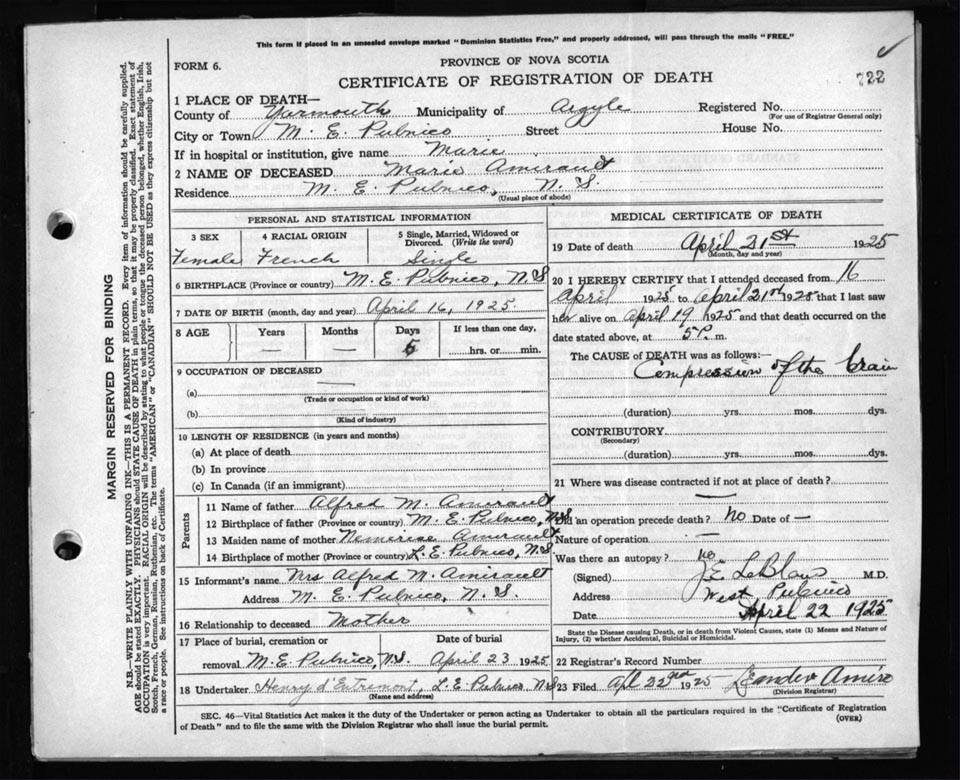 This form if placed in an unsealed envelope marked "Dominion Statistics Free," and properly addressed, will pass through the mails "FREE."
FORM 6.
PROVINCE OF NOVA SCOTIA
CERTIFICATE OF REGISTRATION OF DEATH
722
1 PLACE OF DEATH—
County of Yarmouth Municipality of Argyle Registered No.
(For use of Registrar General only)
City or Town M. E. Pubnico Street House No.
If in hospital or institution, give name Marie
2 NAME OF DECEASED Marie Amirault
Residence M. E. Pubnico, N. S.
(Usual place of abode)
PERSONAL AND STATISTICAL INFORMATION
3 SEX 4 RACIAL ORIGIN 5 Single, Married, Widowed or Divorced. (Write the word)
Female French Single
6 BIRTHPLACE (Province or country) M. E. Pubnico, N.S
7 DATE OF BIRTH (month, day and year) April 16, 1925
8 AGE Years Months Days If less than one day,
— — 5 hrs. or min.
9 OCCUPATION OF DECEASED
(a) —
(Trade or occupation or kind of work)
(b)
(Kind of industry)
10 LENGTH OF RESIDENCE (in years and months)
(a) At place of death
(b) In province
(c) In Canada (if an immigrant)
Parents
11 Name of father Alfred M. Amirault
12 Birthplace of father (Province or country) M. E. Pubnico, N.S
13 Maiden name of mother Amirault
14 Birthplace of mother (Province or country) L. E. Pubnico, N.S.
15 Informant's name Mrs Alfred M. Amirault
Address M. E. Pubnico, N. S.
16 Relationship to deceased Mother
17 Place of burial, cremation or Date of burial
removal M. E. Pubnico, N.S. April 23 1925
18 Undertaker Henry d'Entremont, L. E. Pubnico, N.S
(Name and address)
MEDICAL CERTIFICATE OF DEATH
19 Date of death April 21st 1925
(Month, day and year)
20 I HEREBY CERTIFY that I attended deceased from 16
April 1925 to April 21st 1925 that I last saw
her alive on April 19 1925 and that death occurred on the
date stated above, at 5 P. m.
The CAUSE of DEATH was as follows:—
Compression of the Brain
(duration) yrs. mos. dys.
CONTRIBUTORY
(Secondary)
(duration) yrs. mos. dys.
21 Where was disease contracted if not at place of death?
—
Did an operation precede death? No Date of —
Nature of operation —
Was there an autopsy? no
(Signed) J. E. LeBlanc M.D.
Address West Pubnico
Date April 22 1925
State the Disease causing Death, or in death from Violent Causes, state (1) Means and Nature of
Injury, (2) whether Accidental, Suicidal or Homicidal.
22 Registrar's Record Number
23 Filed Apl 22nd 1925 Leander Amiro
(Division Registrar)
SEC. 46—Vital Statistics Act makes it the duty of the Undertaker or person acting as Undertaker to obtain all the particulars required in the "Certificate of Registration
of Death" and to file the same with the Division Registrar who shall issue the burial permit.
(OVER)
MARGIN RESERVED FOR BINDING
N.B.—WRITE PLAINLY WITH UNFADING INK—THIS IS A PERMANENT RECORD. Every item of information should be carefully supplied.
AGE should be stated EXACTLY. PHYSICIANS should STATE CAUSE OF DEATH in plain terms, so that it may be properly classified. Exact statement of
OCCUPATION is very important. RACIAL ORIGIN will be described by stating to what people or tongue the deceased person belonged, whether English, Irish,
Scotch, French, German, Russian, Ruthenian, etc. The terms "AMERICAN" or "CANADIAN" SHOULD NOT BE USED as they express citizenship but not
a race or people. See instructions on back of Certificate.